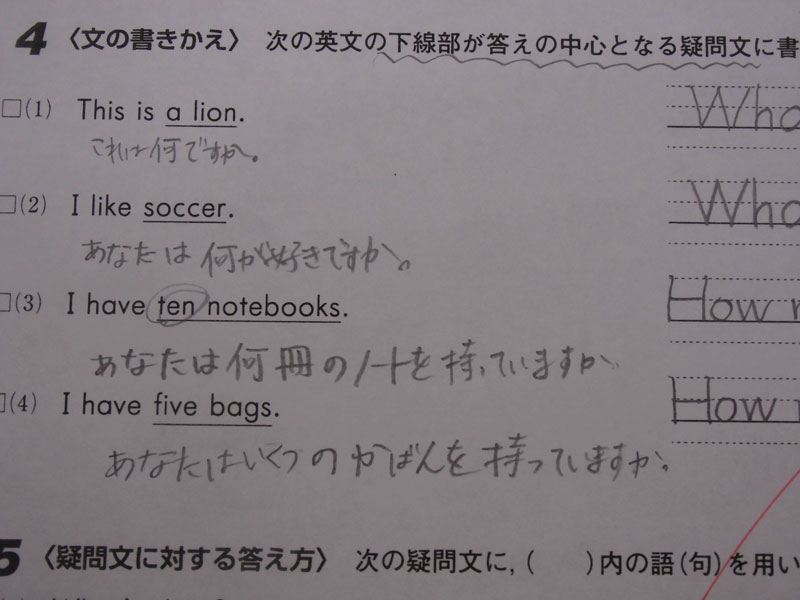 4 〈文の書きかえ〉 次の英文の下線部が答えの中心となる疑問文に書
□(1) This is a lion. Wha
これは何ですか。
□(2) I like soccer. Wha
あなたは何が好きですか。
□(3) I have ten notebooks. How m
あなたは何冊のノートを持っていますか
□(4) I have five bags. How m
あなたはいくつのかばんを持っていますか。
5 〈疑問文に対する答え方〉 次の疑問文に,( )内の語(句)を用い